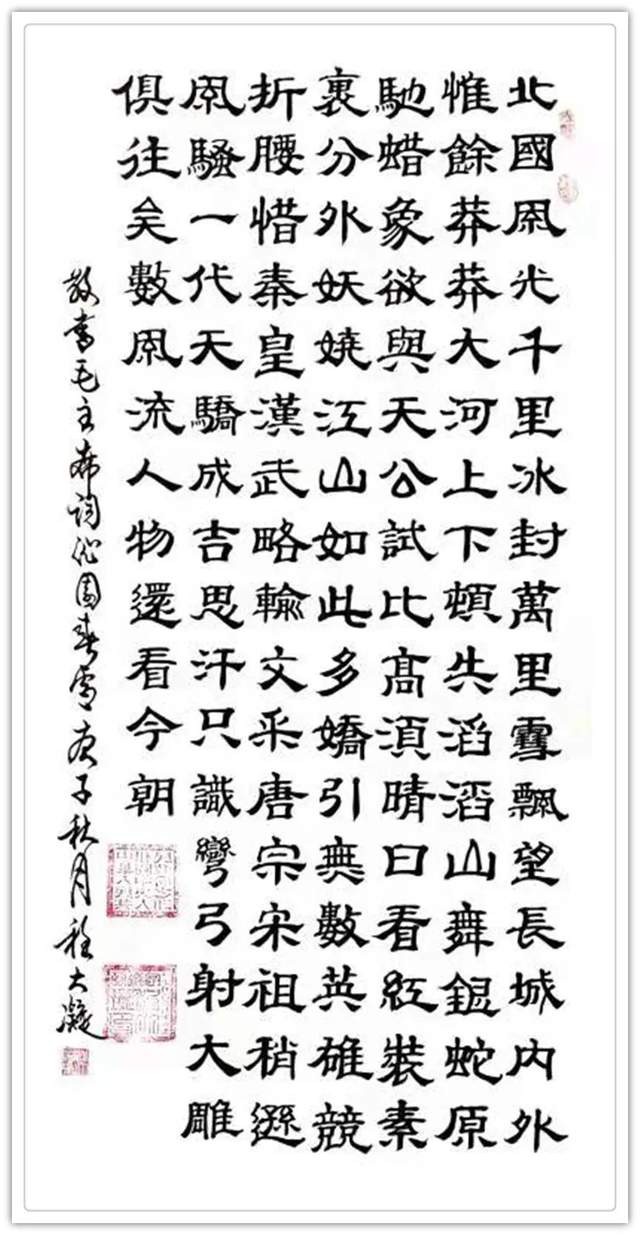 北國風光千里冰封萬里雪飄望長城内外
惟餘莽莽大河上下頓失滔滔山舞銀蛇原
馳蜡象欲與天公試比高須晴日看紅裝素
裹分外妖嬈江山如此多嬌引無數英雄競
折腰惜秦皇漢武略輸文采唐宗宋祖稍遜
風騷一代天驕成吉思汗只識彎弓射大雕
俱往矣數風流人物還看今朝
敬書毛主席詞沁園春雪庚子秋月程大凝